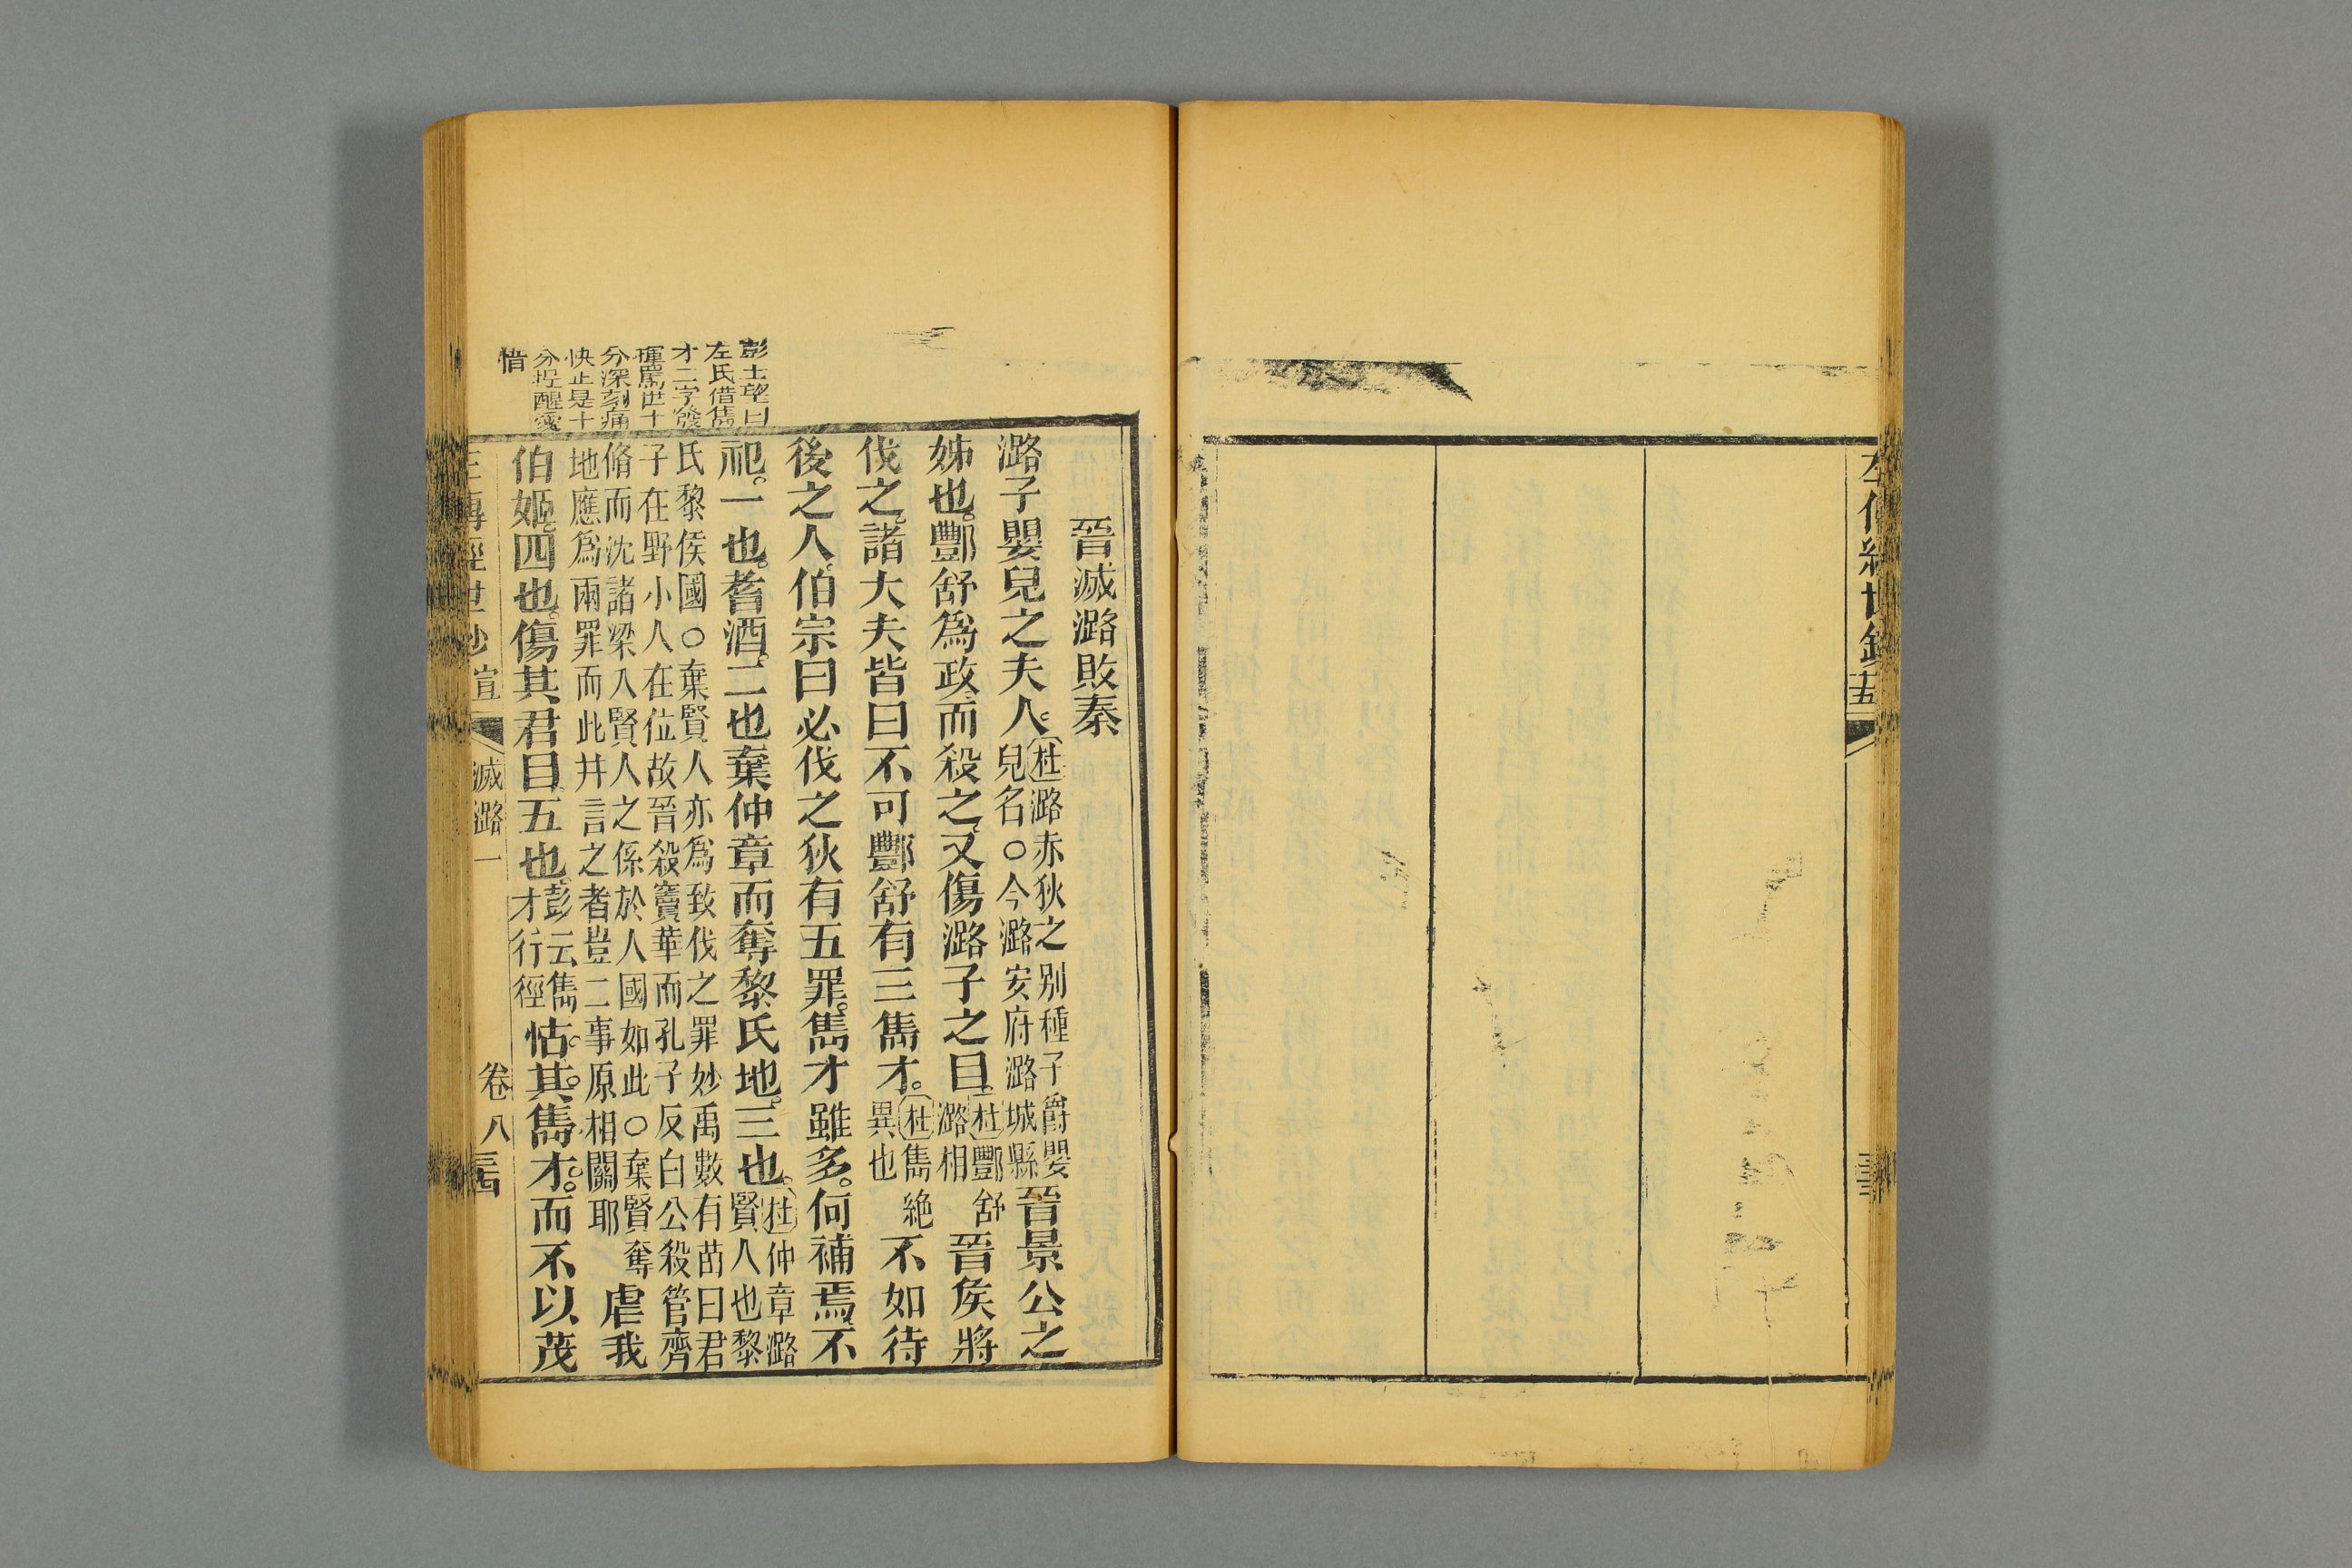 左傳經世鈔
十五
晉滅潞敗秦
潞子嬰兒之夫人杜潞赤狄之別種子爵嬰兒名○今潞安府潞城縣晉景公之
姊也酆舒爲政而殺之又傷潞子之目杜酆舒潞相晉侯將
伐之諸大夫皆曰不可酆舒有三雋才杜雋絕異也不如待
後之人伯宗曰必伐之狄有五罪雋才雖多何補焉不
祀一也耆酒二也棄仲章而奪黎氏地三也杜仲章潞賢人也黎
氏黎侯國○棄賢人亦爲致伐之罪妙禹數有苗曰君
子在野小人在位故晉殺竇華而孔子反白公殺管齊
脩而沈諸梁入賢人之係於人國如此○棄賢奪
地應爲兩罪而此井言之者豈二事原相關耶虐我
伯姬四也傷其君目五也彭云雋才行徑怙其雋才而不以茂
彭士望曰
左氏借雋
才二字發
揮罵世十
分深刻痛
快正是十
分提醒愛
惜
左傳經世鈔 宣 滅潞一 卷八